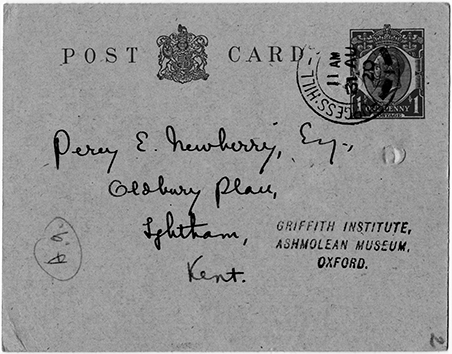 POST CARD
GESS·HILL
11 AM
31 AU
20
ONE PENNY
POSTAGE
Percy E. Newberry, Esq.,
Oldbury Place,
Ightham,
Kent.
GRIFFITH INSTITUTE,
ASHMOLEAN MUSEUM,
OXFORD.
2